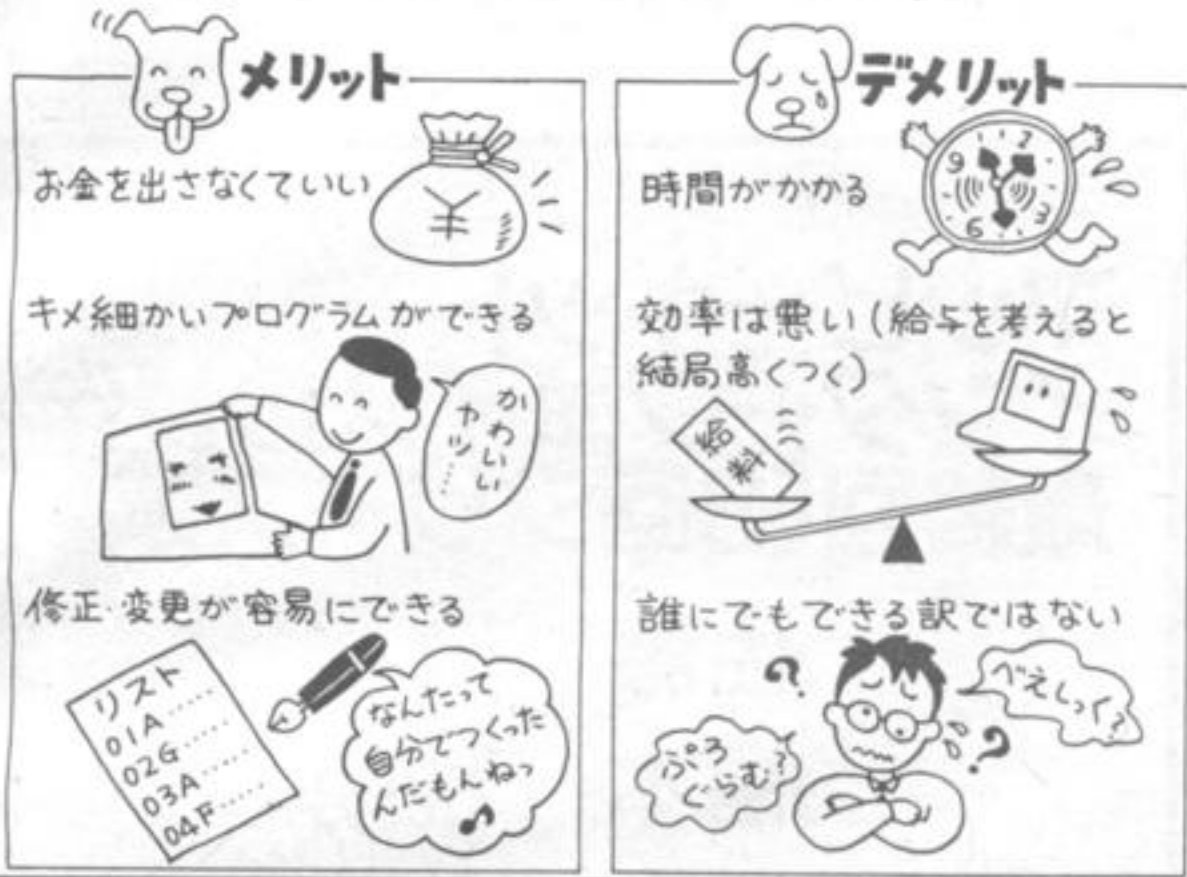 メリット
お金を出さなくていい
¥
キメ細かいプログラムができる
かわいい
ヤツ……
修正・変更が容易にできる
リスト
01A……
02G……
03A……
04F……
なんたって
自分でつくった
んだもんねっ
デメリット
時間がかかる
9 2
6 3
効率は悪い(給与を考えると
結局高くつく)
給料
誰にでもできる訳ではない
?
べえしっく?
ぷろ
ぐらむ?
?